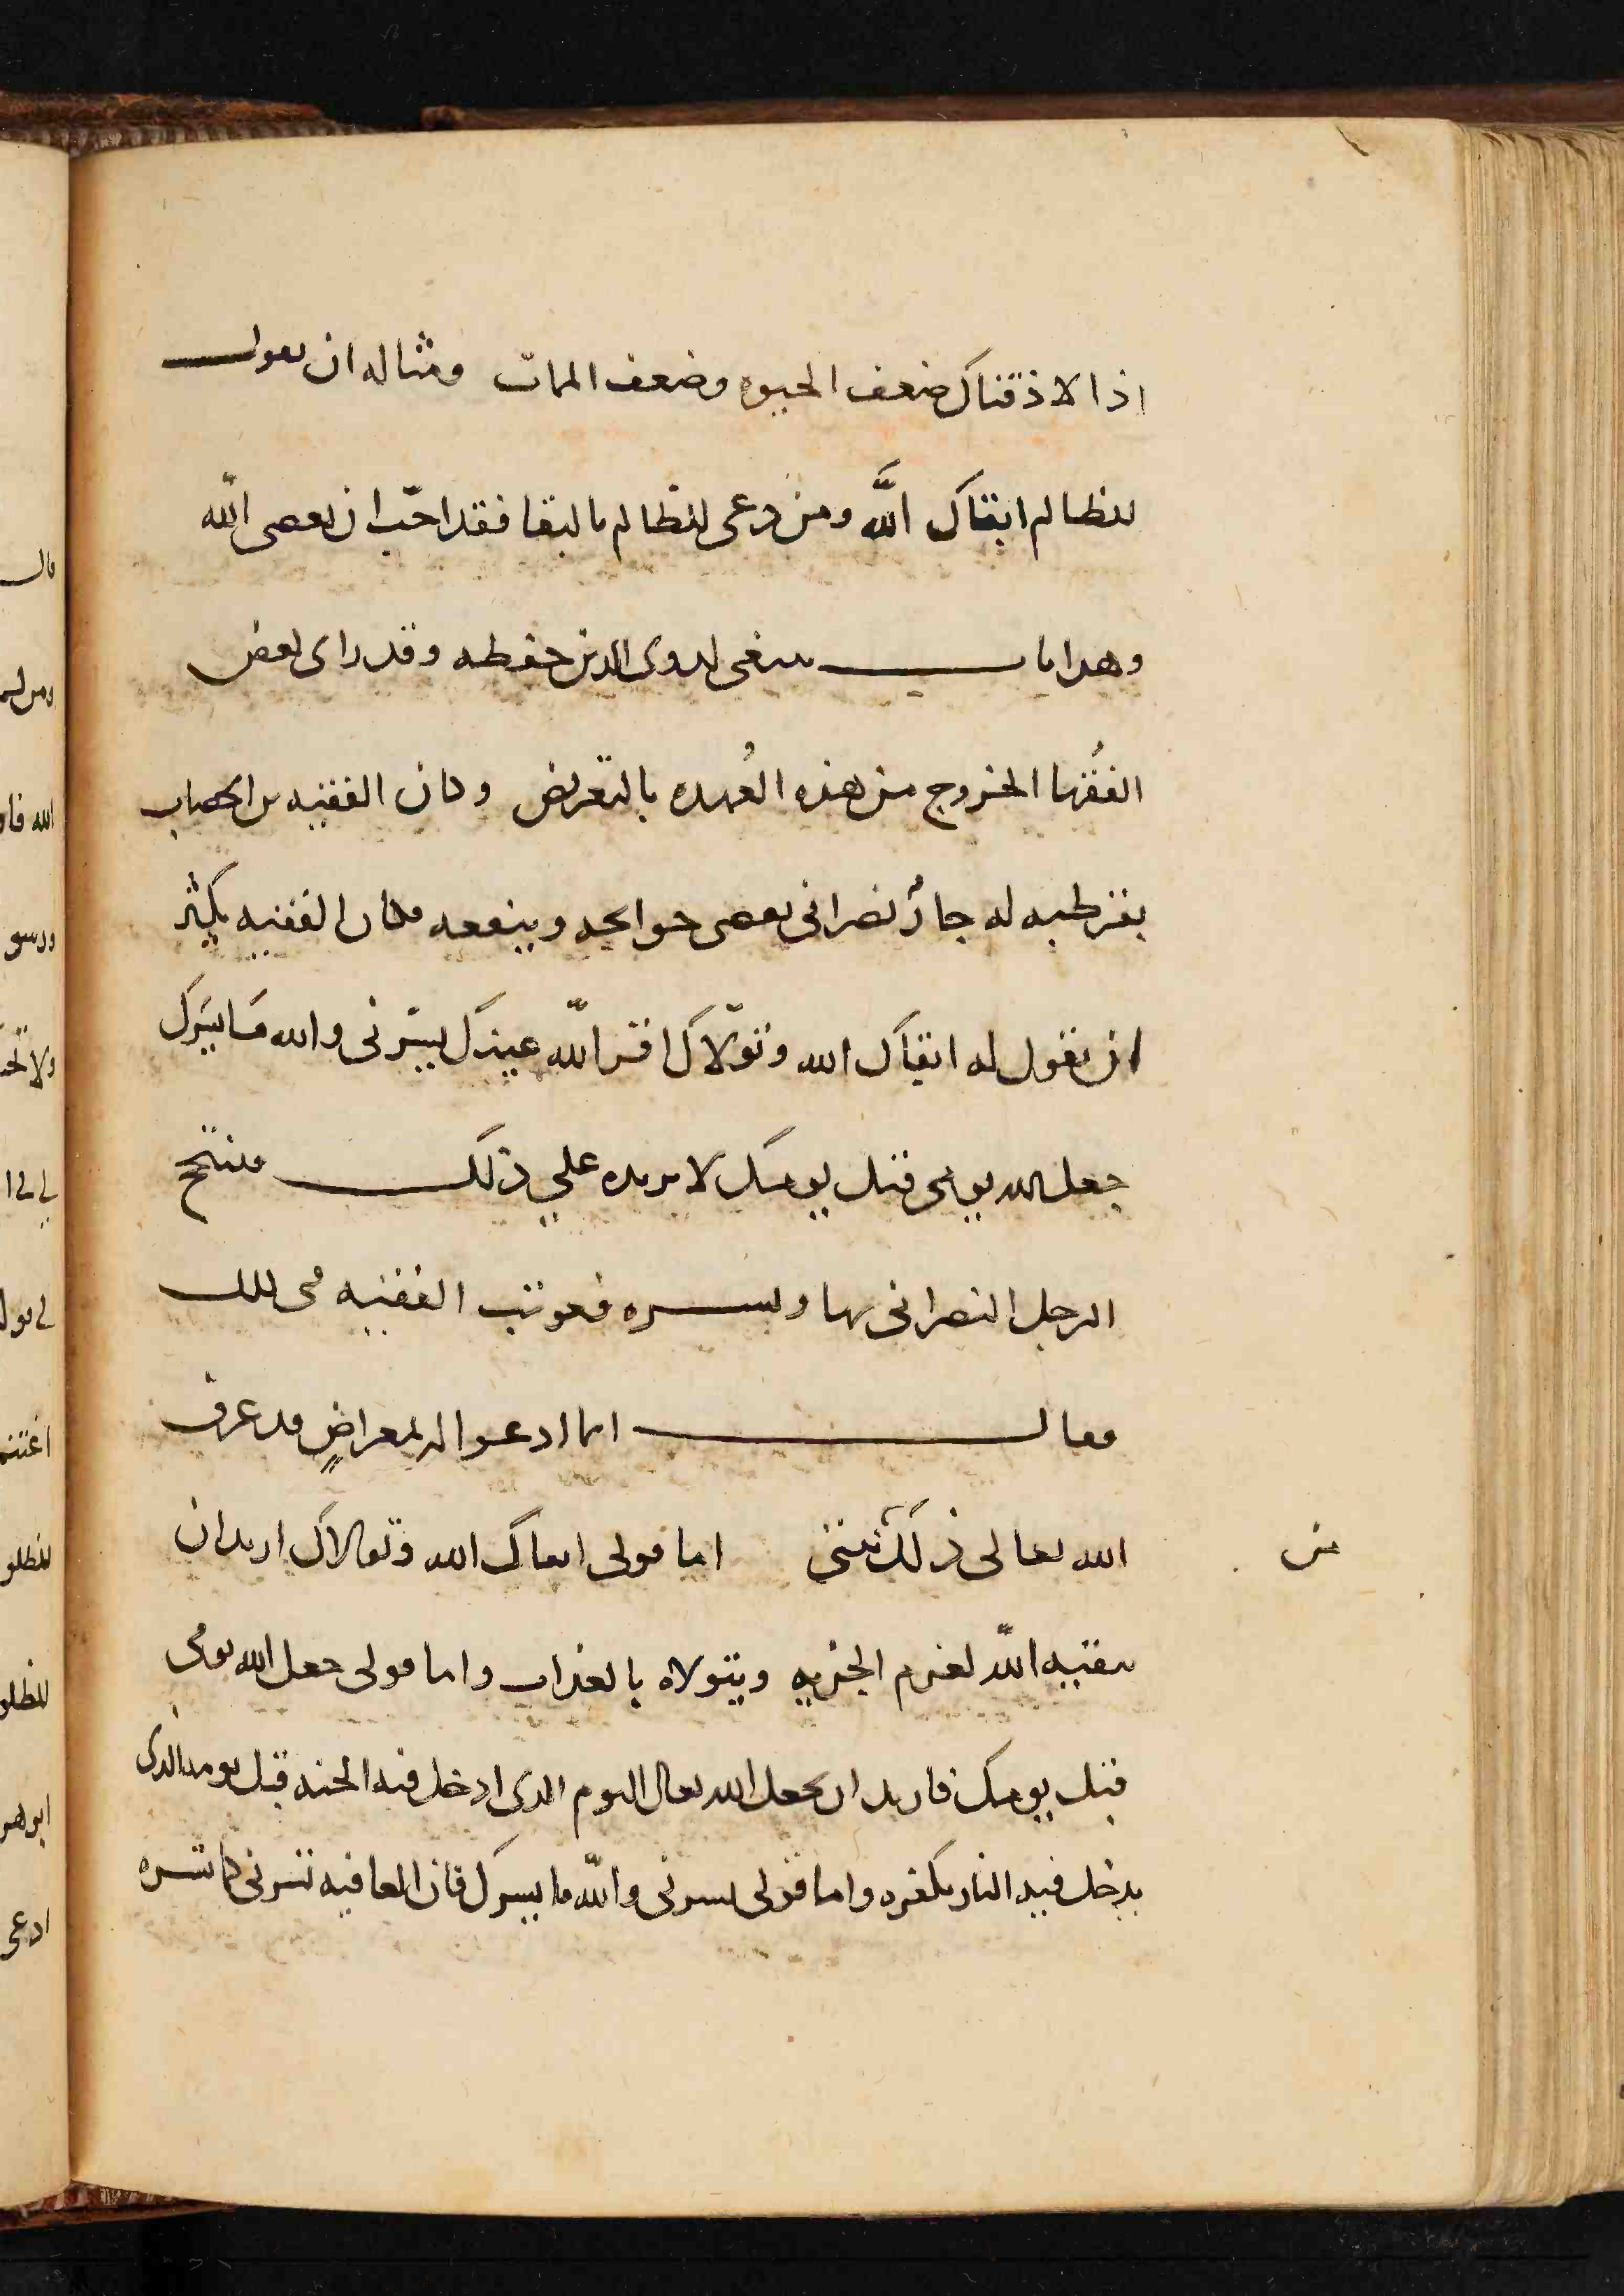 اذا لاذقناك ضعف الحيوه وضعف الممات ومثاله ان يقول
للظالم ابقاك الله ومن دعى للظالم بالبقا فقد احب ان يعصى الله
وهذا باب ينبغى لذوى الدين حفظه وقد راى بعض
الفقها الخروج من هذه العُهده بالتعريض وكان الفقيه بن الحصاب
بقرطبه له جارٌ نصرانى يقضى حوايجه وينفعه فكان الفقيه يكثر
ان يقول له ابقاك الله وتولّاك اقر الله عينك يسرنى والله ما يسرك
جعل الله يومى قبل يومك لا يزيده على ذلك فيبتهج
الرجل النصرانى بها ويسره فعوتب الفقيه فى ذلك
فقال انما ادعوا له بمعراضٍ قد عرف
الله تعالى ذلك نيتى اما قولى ابقاك الله وتولاك اريد ان
من
يبقيه الله لغرم الجزيه ويتولاه بالعذاب واما قولى جعل الله يومى
قبل يومك فاريد ان يجعل الله تعالى اليوم الذى ادخل فيه الجنه قبل يومه الذى
يدخل فيه النار بكفره واما قولى يسرنى والله ما يسرك فان العافيه تسرنى كما تسره